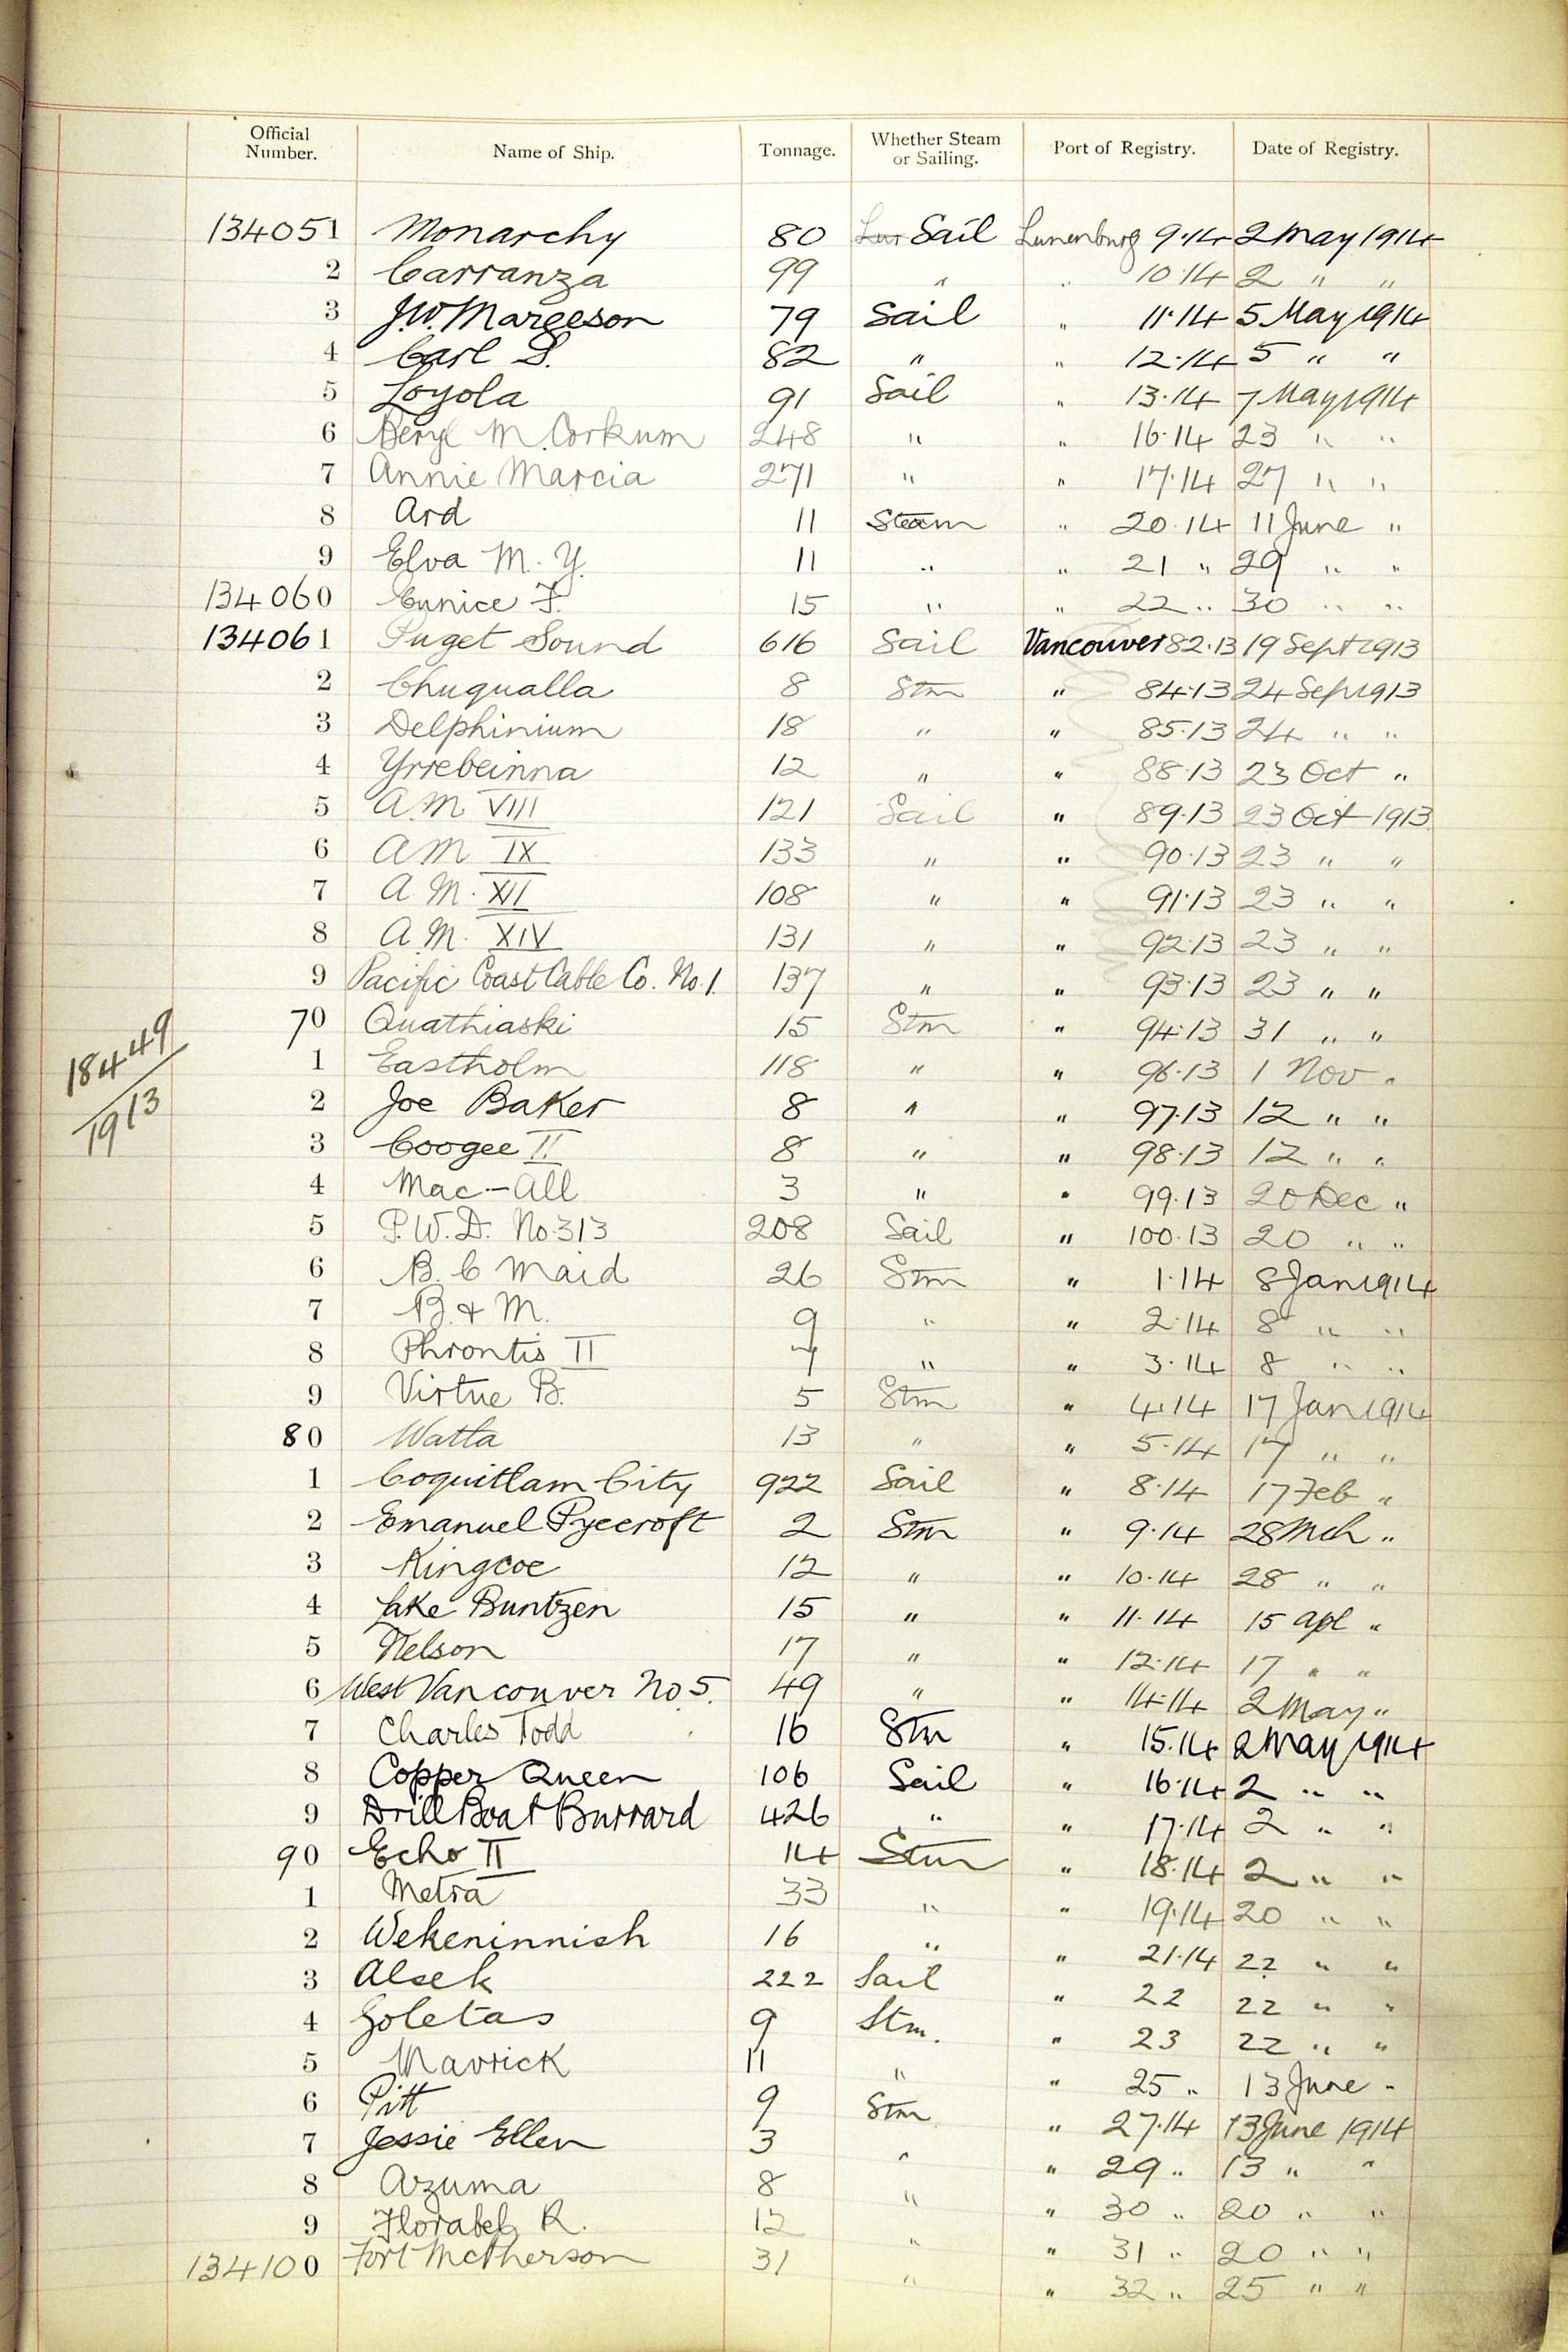 Official Number. Name of Ship. Tonnage. Whether Steam or Sailing. Port of Registry. Date of Registry.
134051 Monarchy 80 Lun Sail Lunenburg 9.14 2 May 1914
2 Carranza 99 " " 10.14 2 " "
3 J.W. Margeson 79 Sail " 11.14 5 May 1914
4 Carl L. 82 " " 12.14 5 " "
5 Loyola 91 Sail " 13.14 7 May 1914
6 Beryl M. Corkum 248 " " 16.14 23 " "
7 Annie Marcia 271 " " 17.14 27 " "
8 Ard 11 Steam " 20.14 11 June "
9 Elva M. Y. 11 " " 21 " 29 " "
134060 Eunice F. 15 " " 22 " 30 " "
134061 Puget Sound 616 Sail Vancouver 82.13 19 Sept 1913
2 Chuqualla 8 Stm " 84.13 24 Sep 1913
3 Delphinium 18 " " 85.13 24 " "
4 Yrrebeinna 12 " " 88.13 23 Oct "
5 A.M VIII 121 Sail " 89.13 23 Oct 1913
6 A M IX 133 " " 90.13 23 " "
7 A M. XII 108 " " 91.13 23 " "
8 A. M. XIV 131 " " 92.13 23 " "
9 Pacific Coast Cable Co. No. 1. 137 " " 93.13 23 " "
70 Quathiaski 15 Stm " 94.13 31 " "
18449/1913
1 Eastholm 118 " " 96.13 1 Nov "
2 Joe Baker 8 " " 97.13 12 " "
3 Coogee II 8 " " 98.13 12 " "
4 Mac-All 3 " " 99.13 20 Dec "
5 P.W.D. No. 313 208 Sail " 100.13 20 " "
6 B. C Maid 26 Stm " 1.14 8 Jan 1914
7 B. & M. 9 " " 2.14 8 " "
8 Phrontis II 7 " " 3.14 8 " "
9 Virtue B. 5 Stm " 4.14 17 Jan 1914
80 Watla 13 " " 5.14 17 " "
1 Coquitlam City 922 Sail " 8.14 17 Feb "
2 Emanuel Pyecroft 2 Stm " 9.14 28 Mch "
3 Kingcoe 12 " " 10.14 28 " "
4 Lake Buntzen 15 " " 11.14 15 Apl "
5 Nelson 17 " " 12.14 17 " "
6 West Vancouver No 5. 49 " " 14.14 2 May "
7 Charles Todd 16 Stm " 15.14 2 May 1914
8 Copper Queen 106 Sail " 16.14 2 " "
9 Drill Boat Burrard 426 " " 17.14 2 " "
90 Echo II 14 Stm " 18.14 2 " "
1 Metra 33 " " 19.14 20 " "
2 Wekeninnish 16 " " 21.14 22 " "
3 Alsek 222 Sail " 22 22 " "
4 Goletas 9 Stm. " 23 22 " "
5 Mavrick 11 " " 25 " 13 June "
6 Pitt 9 Stm " 27.14 13 June 1914
7 Jessie Ellen 3 " " 29 " 13 " "
8 Azuma 8 " " 30 " 20 " "
9 Florabel R. 12 " " 31 " 20 " "
134100 Fort McPherson 31 " " 32 " 25 " "